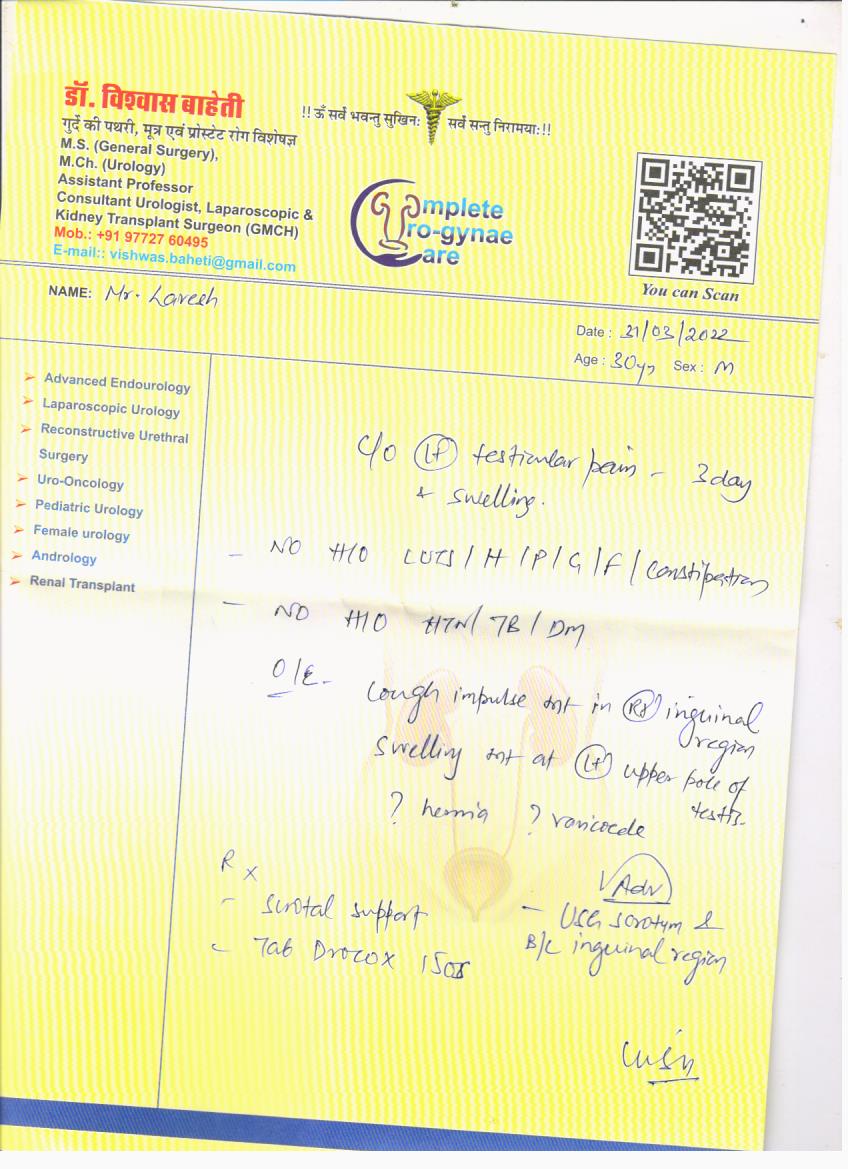 डॉ. विश्वास बाहेती
गुर्दे की पथरी, मूत्र एवं प्रोस्टेट रोग विशेषज्ञ
M.S. (General Surgery),
M.Ch. (Urology)
Assistant Professor
Consultant Urologist, Laparoscopic &
Kidney Transplant Surgeon (GMCH)
Mob.: +91 97727 60495
E-mail:: vishwas.baheti@gmail.com
!! ॐ सर्वे भवन्तु सुखिनः सर्वे सन्तु निरामयाः!!
Complete
Uro-gynae
Care
You can Scan
NAME: Mr. Lavesh
Date : 31/03/2022
Age : 30yr Sex : M
Advanced Endourology
Laparoscopic Urology
Reconstructive Urethral
Surgery
Uro-Oncology
Pediatric Urology
Female urology
Andrology
Renal Transplant
C/O Lt testicular pain - 3 day
& swelling.
- NO H/O LUTS / H / P / G / F / Constipation
- NO H/O HTN / TB / DM
O/E-
Cough impulse in Rt inguinal
region
Swelling at Lt upper pole of
testis.
? hernia ? varicocele
Rx
- Scrotal support
- Tab Drocox
Adv
- USG scrotum &
B/L inguinal region